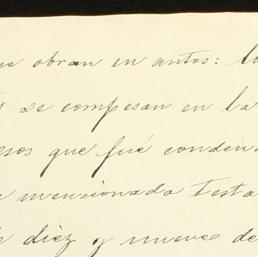 que obran en autos: lo
se compesan en la
esos que fué conden
mencionada testa
diez y nueve de